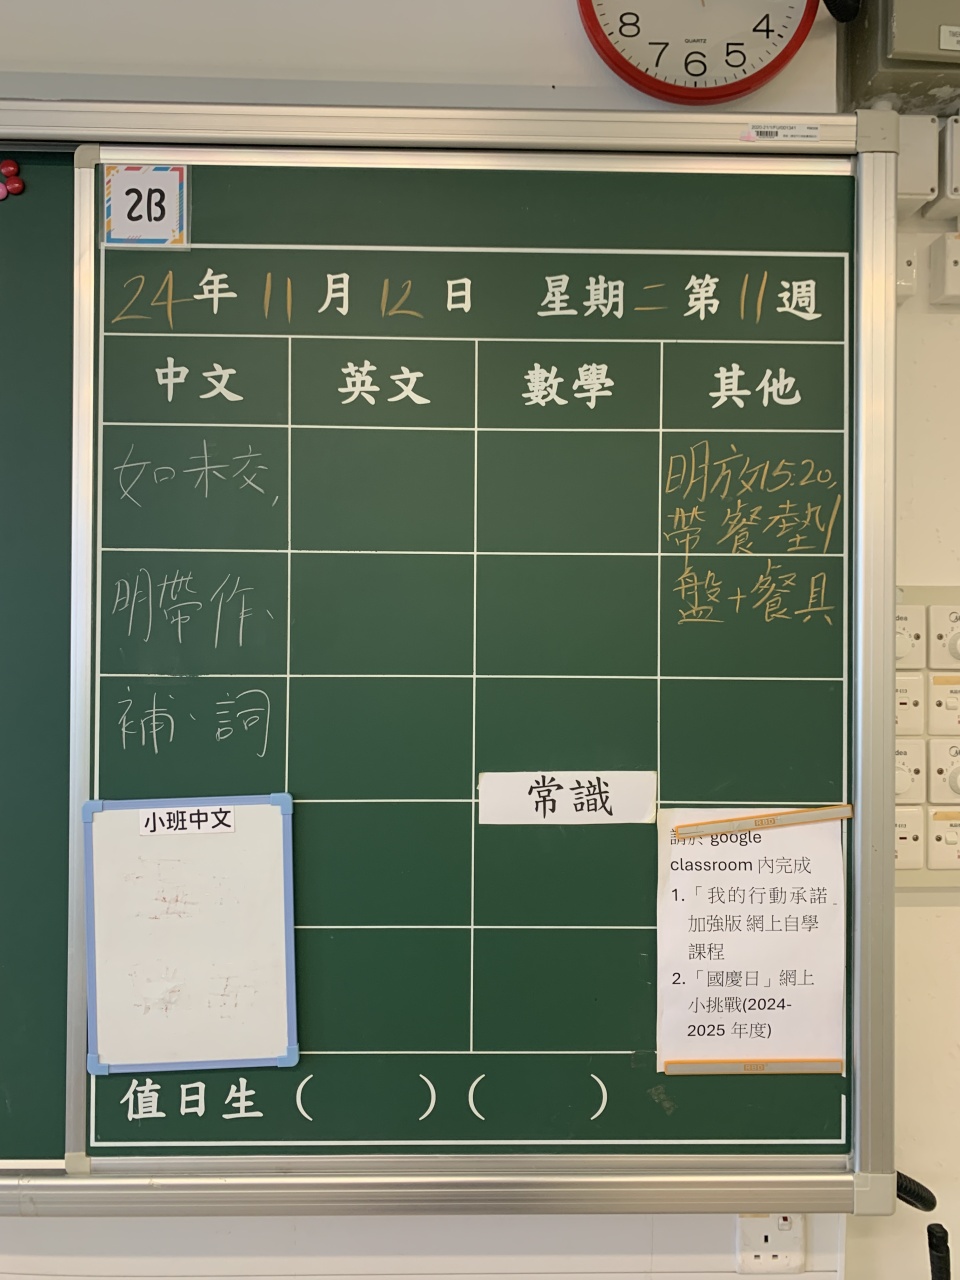 8 7 6 5 4
QUARTZ
2B
24年 11月 12日 星期二 第11週
中文 英文 數學 其他
如未交,
明帶作、
補、詞
明放15:20,
帶餐墊/
盤+餐具
常識
小班中文
請於 google
classroom 內完成
1.「我的行動承諾
加強版 網上自學
課程
2.「國慶日」網上
小挑戰(2024-
2025 年度)
值日生 ( ) ( )